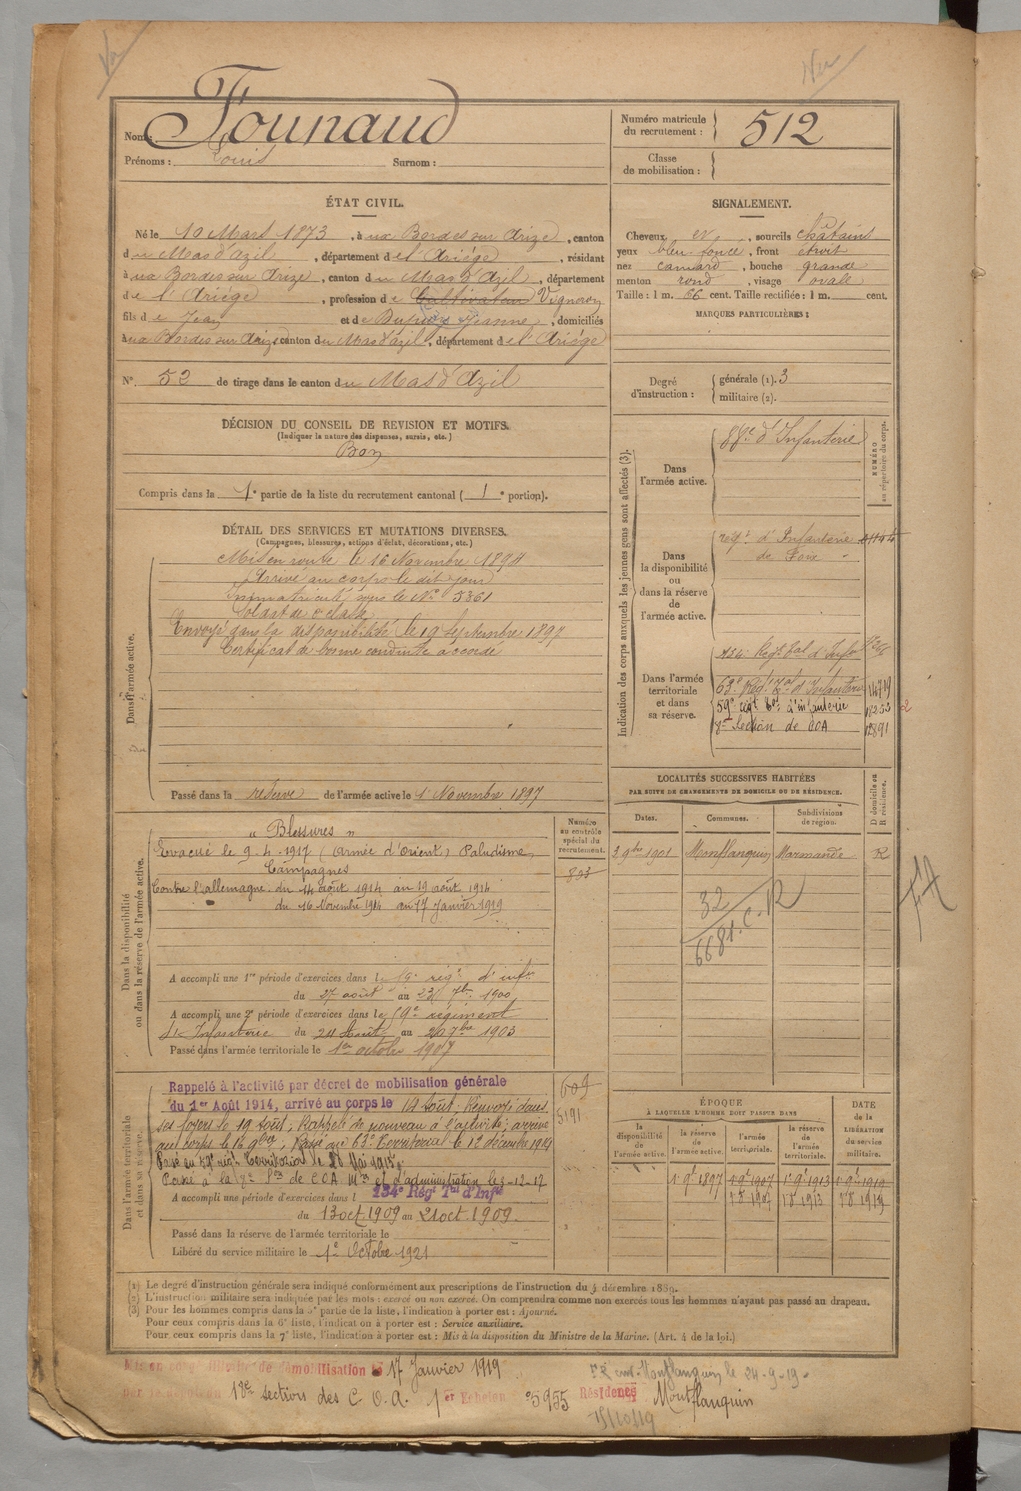 Vu
Vu
Nom : Founaud
Prénoms : Louis Surnom :
Numéro matricule du recrutement : 512
Classe de mobilisation :
ÉTAT CIVIL.
Né le 10 Mars 1873, à ux Bordes sur Arize, canton
du Mas d'Azil, département de l'Ariége, résidant
à ux Bordes sur Arize, canton du Mas d'Azil, département
de l'Ariége, profession de Cultivateur Vigneron
fils de Jean et de Dupuis Jeanne, domiciliés
à ux Bordes sur Arize canton du Mas d'azil, département de l'Ariége
N° 52 de tirage dans le canton du Mas d'Azil
DÉCISION DU CONSEIL DE REVISION ET MOTIFS.
(Indiquer la nature des dispenses, sursis, etc.)
Bon
Compris dans la 1e partie de la liste du recrutement cantonal (1e portion).
SIGNALEMENT.
Cheveux et, sourcils châtains
yeux bleu foncé, front étroit
nez camard, bouche grande
menton rond, visage ovale
Taille : 1 m. 66 cent. Taille rectifiée : 1 m. cent.
MARQUES PARTICULIÈRES :
Degré d'instruction : générale (1). 3
militaire (2).
DÉTAIL DES SERVICES ET MUTATIONS DIVERSES.
(Campagnes, blessures, actions d'éclat, décorations, etc.)
Dans l'armée active.
Mis en route le 16 Novembre 1894
Arrivé au corps le dit jour
Immatriculé sous le N° 5361
Soldat de 2e classe
Envoyé dans la disponibilité le 19 Septembre 1897
Certificat de bonne conduite accordé
Passé dans la réserve de l'armée active le 1 Novembre 1897
Indication des corps auxquels les jeunes gens sont affectés (3).
NUMÉRO au répertoire du corps.
Dans l'armée active.
88e d'Infanterie
Dans la disponibilité ou dans la réserve de l'armée active.
regt d'Infanterie
de Foix
Dans l'armée territoriale et dans sa réserve.
134e Regt tal d'Infie
63e Regt Tal d'Infanterie 14719
59e regt tal d'infanterie
8e Section de COA
LOCALITÉS SUCCESSIVES HABITÉES
PAR SUITE DE CHANGEMENTS DE DOMICILE OU DE RÉSIDENCE.
Dates. Communes. Subdivisions de région. D domicile ou R résidence.
3 9bre 1901 Monflanquin Marmande R
32
6681.C.R
Dans la disponibilité ou dans la réserve de l'armée active.
Numéro au contrôle spécial du recrutement.
803
" Blessures "
Evacué le 9.4.1917 (Armée d'Orient) Paludisme
Campagnes
Contre l'allemagne du 14 août 1914 au 19 août 1914
du 16 Novembre 1914 au 17 Janvier 1919
A accompli une 1re période d'exercices dans le regt d'infie
du 27 août au 23 7bre 1900
A accompli une 2e période d'exercices dans le régiment
d'Infanterie du 24 Août au 20 7bre 1903
Passé dans l'armée territoriale le 1er octobre 1907
Dans l'armée territoriale et dans sa réserve.
609
5191
Rappelé à l'activité par décret de mobilisation générale
du 1er Août 1914, arrivé au corps le 14 Août; Renvoyé dans
ses foyers le 19 Août; Rappelé de nouveau à l'activité; arrivé
au corps le 16 9bre; Passé au 63e Territorial le 12 décembre 1914
Passé au 59e régt Territorial le 28 Mai 1915
Passé à la Son de COA Mre et d'administration le 3-12-17
A accompli une période d'exercices dans l 134e Régt Tal d'Infie
du 13 oct 1909 au 21 oct 1909.
Passé dans la réserve de l'armée territoriale le
Libéré du service militaire le 1er Octobre 1921
ÉPOQUE
À LAQUELLE L'HOMME DOIT PASSER DANS
la disponibilité de l'armée active. la réserve de l'armée active. l'armée territoriale. la réserve de l'armée territoriale.
DATE de la LIBÉRATION du service militaire.
1 9e 1897 1 9e 1907 1 9e 1913 1 9e 1919
1 8 1907 1 8 1913 1 8 1919
(1) Le degré d'instruction générale sera indiqué conformément aux prescriptions de l'instruction du 4 décembre 1889.
(2) L'instruction militaire sera indiquée par les mots : exercé ou non exercé. On comprendra comme non exercés tous les hommes n'ayant pas passé au drapeau.
(3) Pour les hommes compris dans la 5e partie de la liste, l'indication à porter est : Ajourné.
Pour ceux compris dans la 6e liste, l'indication à porter est : Service auxiliaire.
Pour ceux compris dans la 7e liste, l'indication à porter est : Mis à la disposition du Ministre de la Marine. (Art. 4 de la loi.)
Mis en congé illimité de démobilisation le 17 Janvier 1919
18e sections des C.O.A. 1er Echelon 5955 Résidence Monflanquin
Monflanquin le 24-9-19-
15/10/19